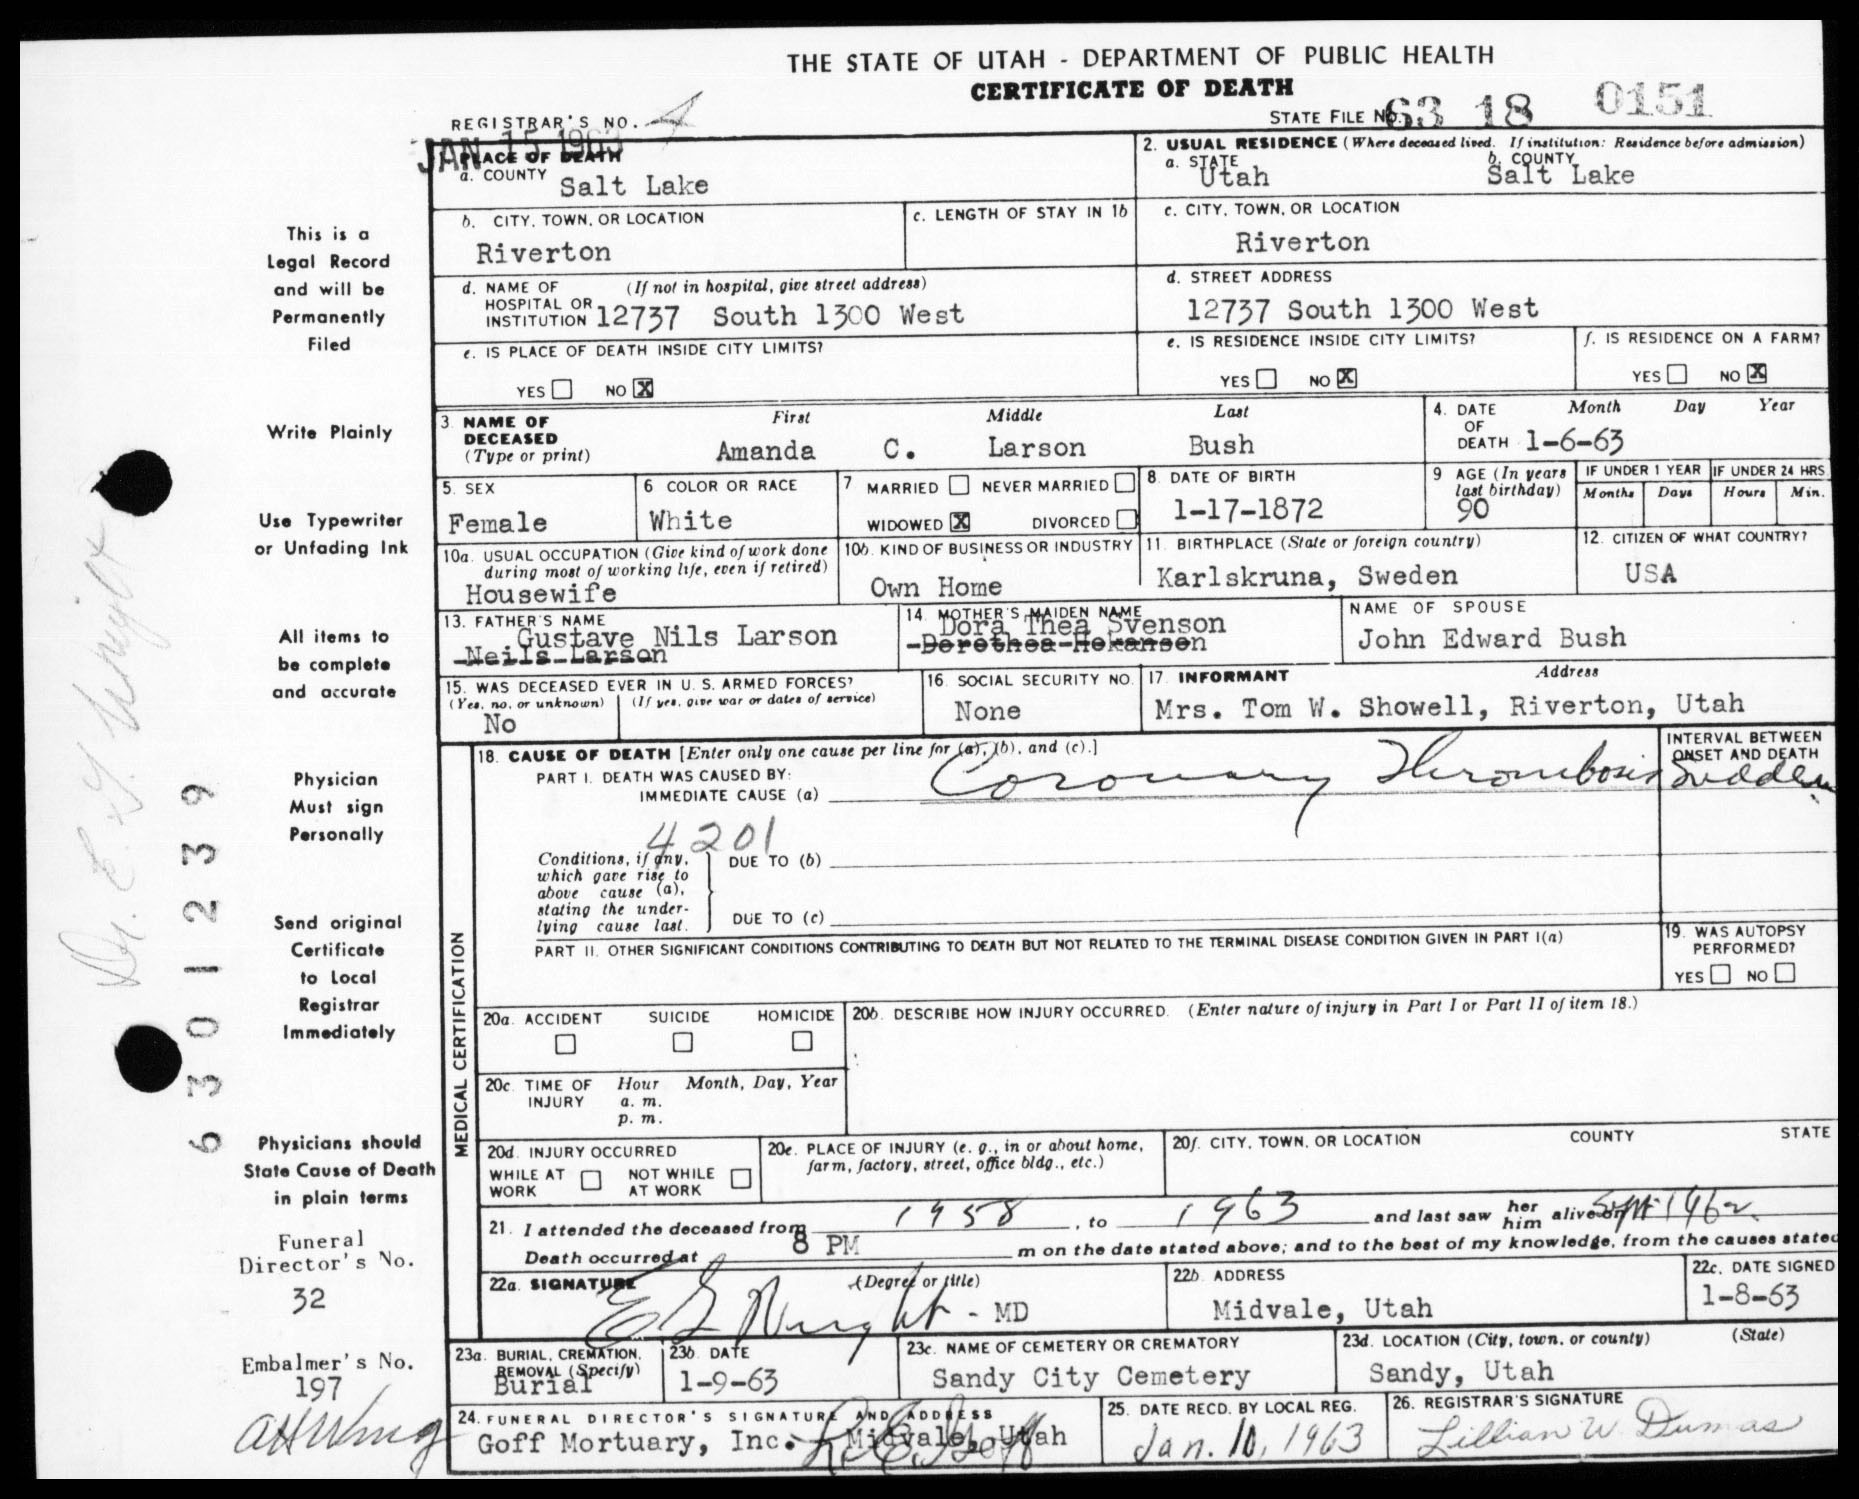 THE STATE OF UTAH - DEPARTMENT OF PUBLIC HEALTH
CERTIFICATE OF DEATH
REGISTRAR'S NO. 4
STATE FILE NO. 63 18 0151
JAN 15 1963
PLACE OF DEATH
a. COUNTY Salt Lake
2. USUAL RESIDENCE (Where deceased lived. If institution: Residence before admission)
a. STATE Utah
b. COUNTY Salt Lake
b. CITY, TOWN, OR LOCATION
Riverton
c. LENGTH OF STAY IN 1b
c. CITY, TOWN, OR LOCATION
Riverton
d. NAME OF (If not in hospital, give street address)
HOSPITAL OR
INSTITUTION 12737 South 1300 West
d. STREET ADDRESS
12737 South 1300 West
e. IS PLACE OF DEATH INSIDE CITY LIMITS?
YES NO X
e. IS RESIDENCE INSIDE CITY LIMITS?
YES NO X
f. IS RESIDENCE ON A FARM?
YES NO X
3. NAME OF First Middle Last
DECEASED
(Type or print) Amanda C. Larson Bush
4. DATE Month Day Year
OF
DEATH 1-6-63
5. SEX
Female
6 COLOR OR RACE
White
7 MARRIED NEVER MARRIED
WIDOWED X DIVORCED
8. DATE OF BIRTH
1-17-1872
9 AGE (In years
last birthday)
90
IF UNDER 1 YEAR
Months Days
IF UNDER 24 HRS.
Hours Min.
10a. USUAL OCCUPATION (Give kind of work done
during most of working life, even if retired)
Housewife
10b. KIND OF BUSINESS OR INDUSTRY
Own Home
11. BIRTHPLACE (State or foreign country)
Karlskruna, Sweden
12. CITIZEN OF WHAT COUNTRY?
USA
13. FATHER'S NAME
Gustave Nils Larson
Neils Larson
14. MOTHER'S MAIDEN NAME
Dora Thea Svenson
Dorothea Hokanson
NAME OF SPOUSE
John Edward Bush
15. WAS DECEASED EVER IN U. S. ARMED FORCES?
(Yes, no, or unknown) (If yes, give war or dates of service)
No
16. SOCIAL SECURITY NO.
None
17. INFORMANT Address
Mrs. Tom W. Showell, Riverton, Utah
MEDICAL CERTIFICATION
18. CAUSE OF DEATH [Enter only one cause per line for (a), (b), and (c).]
PART I. DEATH WAS CAUSED BY:
IMMEDIATE CAUSE (a) Coronary Thrombosis
INTERVAL BETWEEN
ONSET AND DEATH
Sudden
4201
Conditions, if any,
which gave rise to
above cause (a),
stating the under-
lying cause last.
DUE TO (b)
DUE TO (c)
PART II. OTHER SIGNIFICANT CONDITIONS CONTRIBUTING TO DEATH BUT NOT RELATED TO THE TERMINAL DISEASE CONDITION GIVEN IN PART I(a)
19. WAS AUTOPSY
PERFORMED?
YES NO
20a. ACCIDENT SUICIDE HOMICIDE
20b. DESCRIBE HOW INJURY OCCURRED. (Enter nature of injury in Part I or Part II of item 18.)
20c. TIME OF Hour Month, Day, Year
INJURY a. m.
p. m.
20d. INJURY OCCURRED
WHILE AT NOT WHILE
WORK AT WORK
20e. PLACE OF INJURY (e. g., in or about home,
farm, factory, street, office bldg., etc.)
20f. CITY, TOWN, OR LOCATION COUNTY STATE
21. I attended the deceased from 1958, to 1963 and last saw her him alive on Sept 1962.
Death occurred at 8 PM m on the date stated above; and to the best of my knowledge, from the causes stated
22a. SIGNATURE (Degree or title)
E G Wright - MD
22b. ADDRESS
Midvale, Utah
22c. DATE SIGNED
1-8-63
23a. BURIAL, CREMATION,
REMOVAL (Specify)
Burial
23b. DATE
1-9-63
23c. NAME OF CEMETERY OR CREMATORY
Sandy City Cemetery
23d. LOCATION (City, town, or county) (State)
Sandy, Utah
24. FUNERAL DIRECTOR'S SIGNATURE AND ADDRESS
Goff Mortuary, Inc. Midvale, Utah
25. DATE RECD. BY LOCAL REG.
Jan. 10, 1963
26. REGISTRAR'S SIGNATURE
Lillian W Dumas
This is a
Legal Record
and will be
Permanently
Filed
Write Plainly
Use Typewriter
or Unfading Ink
All items to
be complete
and accurate
Physician
Must sign
Personally
Send original
Certificate
to Local
Registrar
Immediately
Physicians should
State Cause of Death
in plain terms
Funeral
Director's No.
32
Embalmer's No.
197
Dr. E. G. Wright
6301239